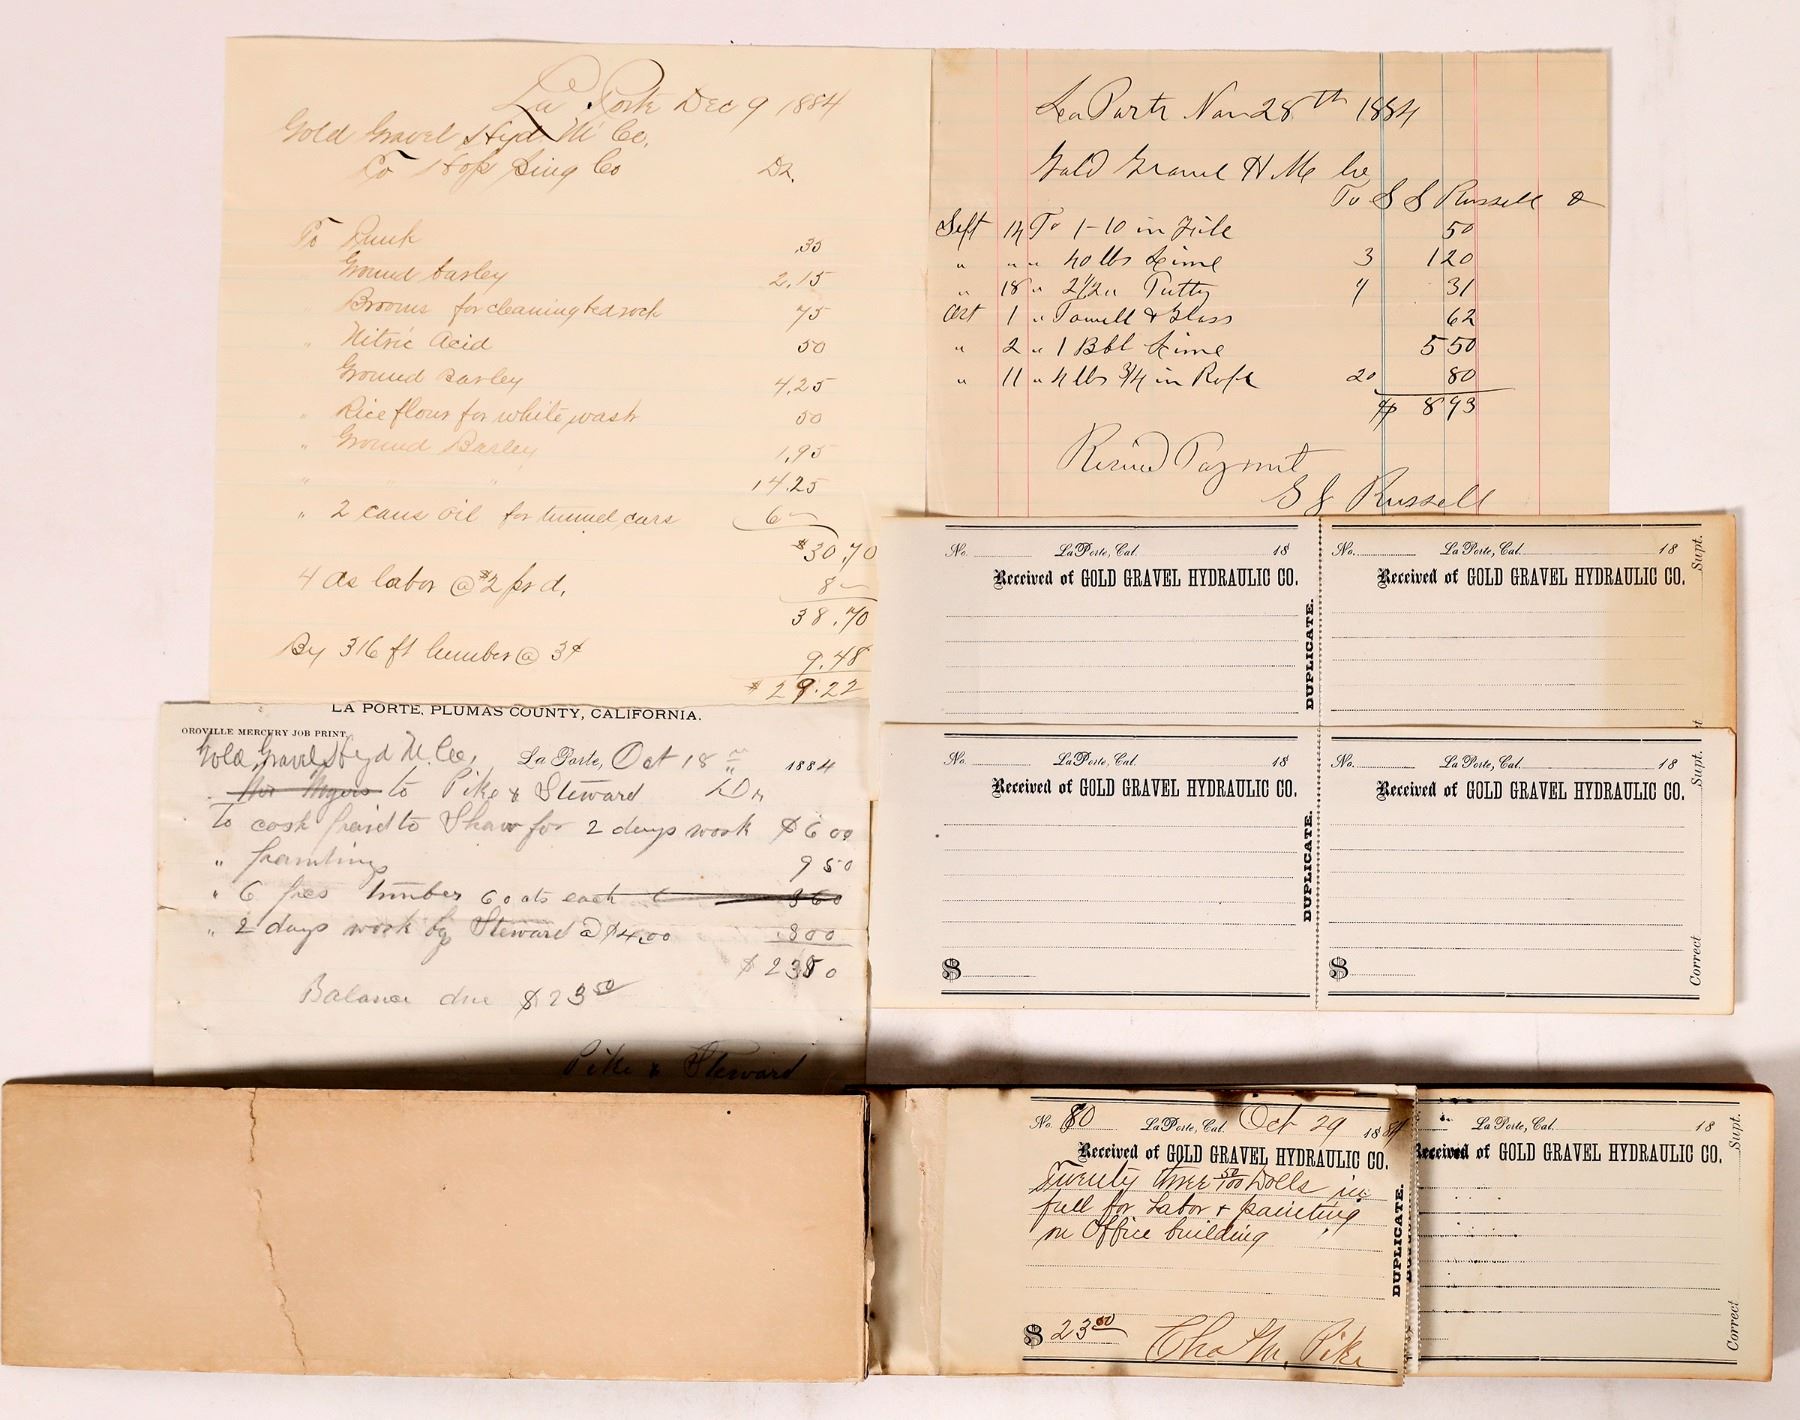 La Porte Dec 9 1884
Gold Gravel Hyd. M Co.
To Hop Sing Co Dr.
To Duck .35
Ground barley 2,15
" Brooms for cleaning bedrock 75
" Nitric Acid 50
Ground Barley 4,25
" Rice flour for white wash 50
" Ground Barley 1,95
" " " 14.25
" 2 cans oil for tunnel cars 6 —
$30.70
4 ds labor @ $2 pr d, 8 —
38.70
By 316 ft lumber @ 3¢ 9.48
$29.22
La Porte Nov 28th 1884
Gold Gravel H M Co
To S S Russell Dr
Sept 14 To 1-10 in File 50
" " " 40 lbs Lime 3 120
" 18 " 2 1/2 " Putty 31
Oct 1 " Towell & Glass 62
" 2 " 1 Bbl Lime 550
" 11 " 4 lbs 3/4 in Rope 20 80
$ 893
Recived Payment
S S Russell
LA PORTE, PLUMAS COUNTY, CALIFORNIA.
OROVILLE MERCURY JOB PRINT.
Gold Gravel Hyd M. Co, La Porte, Oct 18 1884
Myers to Pike & Steward Dr
To cash paid to Shaw for 2 days work $6 00
" painting 9 50
" 6 pces Timber 60 cts each 360
" 2 days work by Steward @ $4.00 800
$ 2350
Balance due $23 50
Pike & Steward
No. La Porte, Cal. 18
Received of GOLD GRAVEL HYDRAULIC CO.
DUPLICATE.
No. La Porte, Cal. 18
Received of GOLD GRAVEL HYDRAULIC CO.
Supt.
No. La Porte, Cal. 18
Received of GOLD GRAVEL HYDRAULIC CO.
DUPLICATE.
$
No. La Porte, Cal. 18
Received of GOLD GRAVEL HYDRAULIC CO.
$
Correct Supt.
No. 80 La Porte, Cal. Oct 29 1884
Received of GOLD GRAVEL HYDRAULIC CO.
Twenty three 50/100 Dolls in
full for Labor & painting
on Office building
$ 23 50 Chas M. Pike
DUPLICATE.
La Porte, Cal. 18
Received of GOLD GRAVEL HYDRAULIC CO.
Correct Supt.